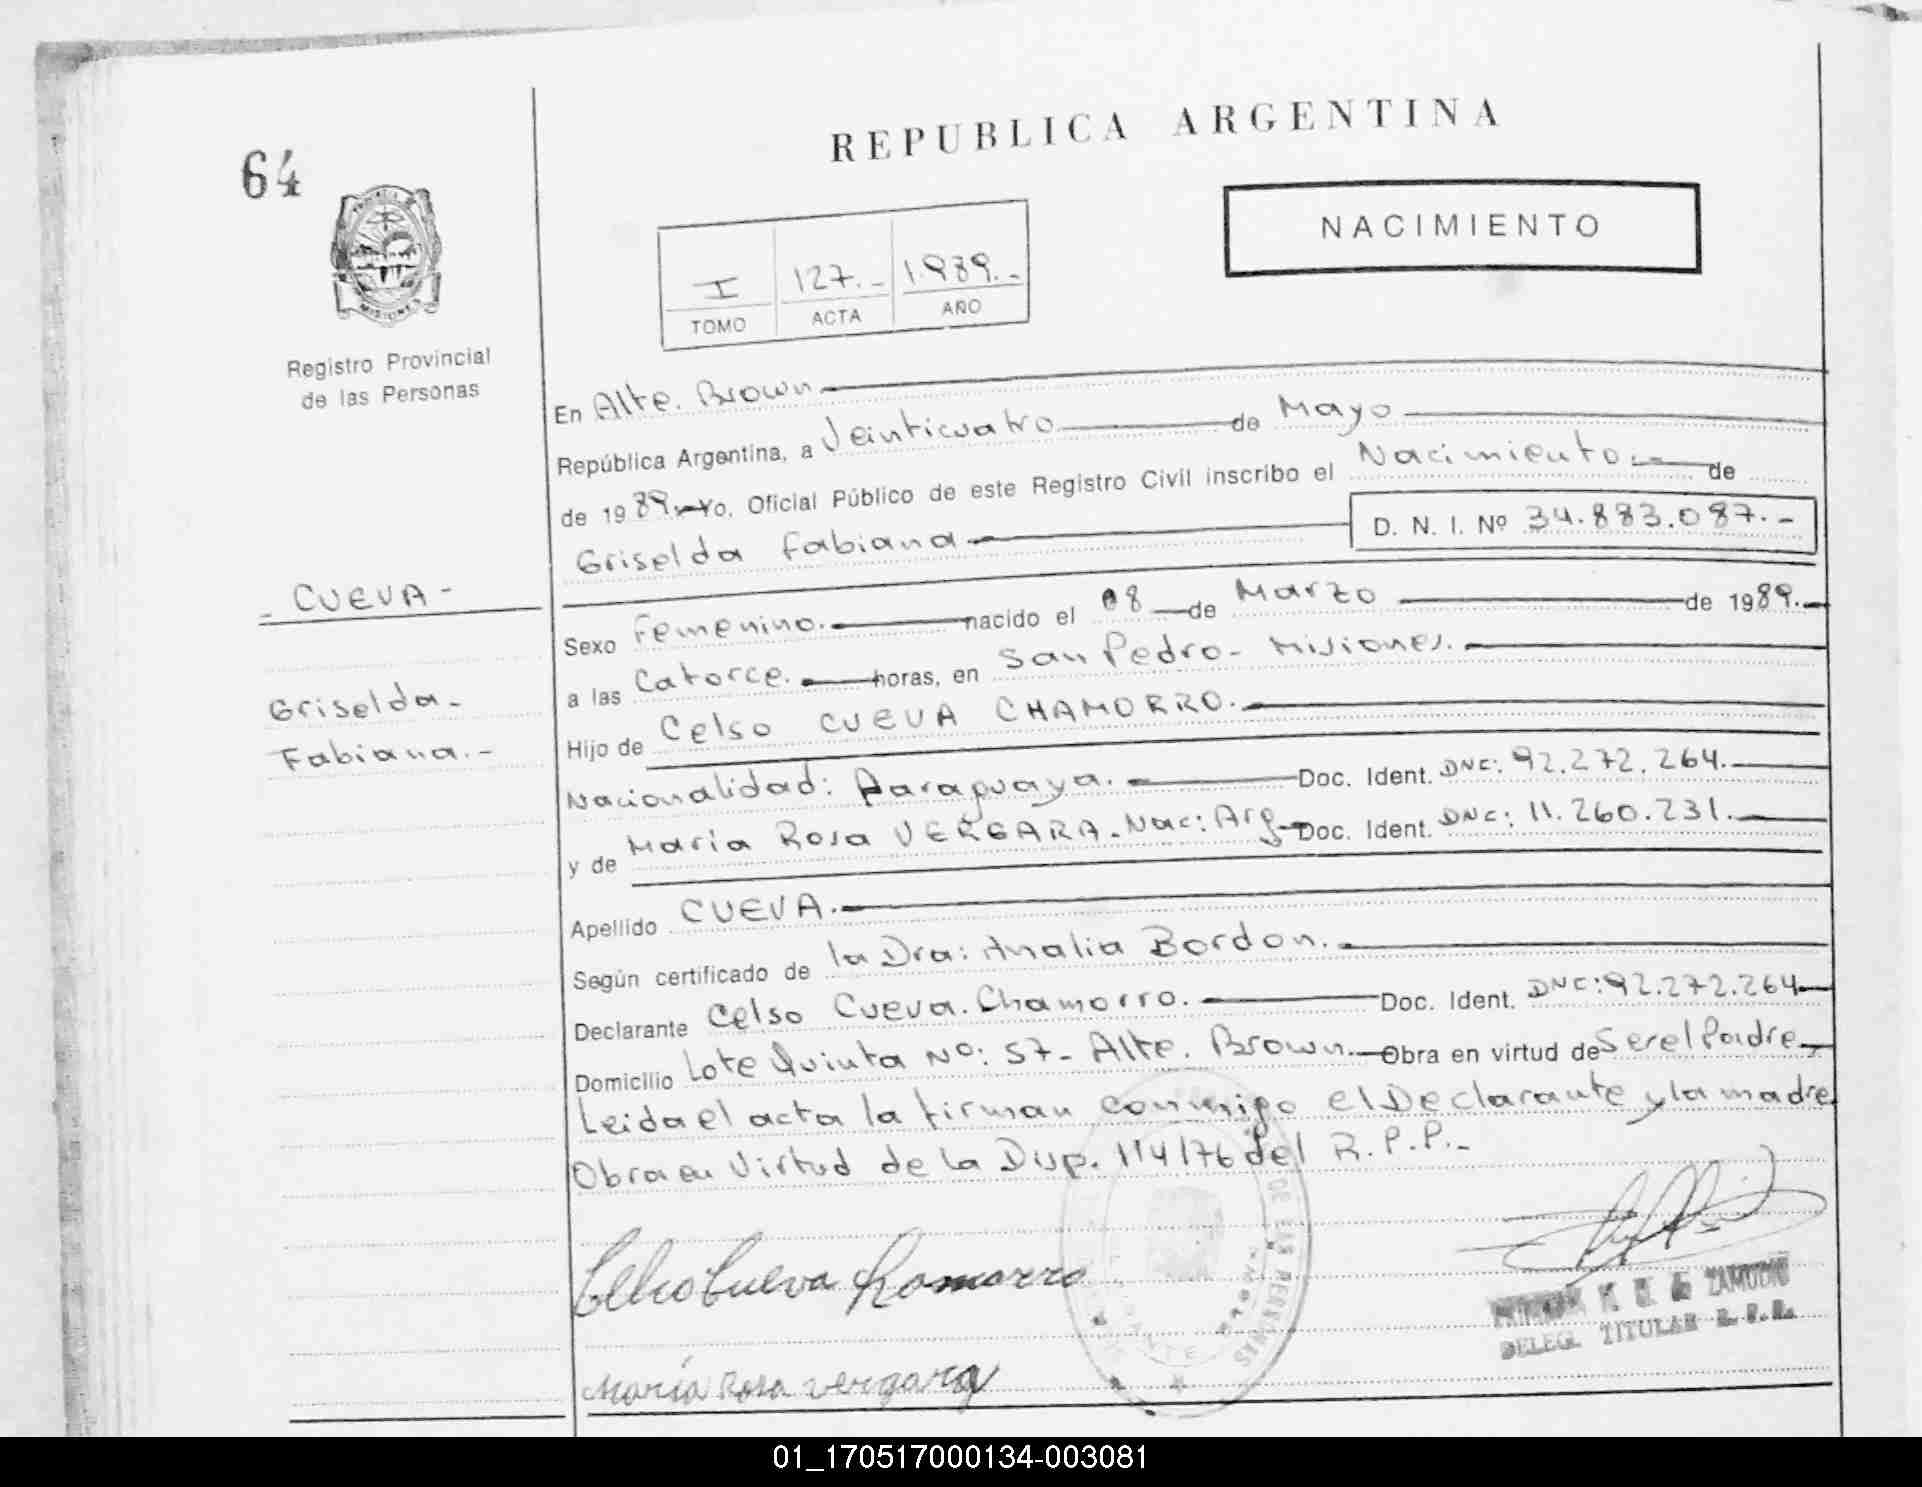 REPUBLICA ARGENTINA
64
NACIMIENTO
I 127.- 1.989.-
TOMO ACTA AÑO
PROVINCIA DE
MISIONES
Registro Provincial
de las Personas
En Alte. Brown
República Argentina, a Veinticuatro de Mayo
de 1989.- Yo, Oficial Público de este Registro Civil inscribo el Nacimiento.- de
Griselda Fabiana D. N. I. Nº 34.883.087.-
- CUEVA -
Sexo Femenino. nacido el 08 de Marzo de 1989.-
a las Catorce. horas, en San Pedro - Misiones.
Griselda -
Fabiana.-
Hijo de Celso CUEVA CHAMORRO.
Nacionalidad: Paraguaya. Doc. Ident. DNC: 92.272.264.
y de María Rosa VERGARA. Nac: Arg Doc. Ident. DNC: 11.260.231.
Apellido CUEVA.
Según certificado de la Dra: Analia Bordon.
Declarante Celso Cueva. Chamorro. Doc. Ident. DNC: 92.272.264
Domicilio Lote Quinta Nº: 57 - Alte. Brown. Obra en virtud de Ser el Padre,
Leida el acta la firman conmigo el Declarante y la madre
Obra en Virtud de la Disp. 114/76 del R.P.P.-
DE LAS PERSONAS
Celso Cueva Chamorro
ZAMUDIO
DELEG. TITULAR R.P.P.
María Rosa Vergara
01_170517000134-003081